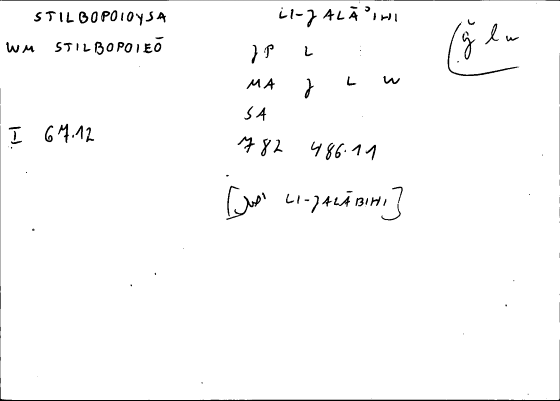 STILBOPOIOYSA LI-JALĀʾIHI
WM STILBOPOIEŌ JP L
MA J L W
SA
I 67.12 782 486.11
[ LI-JALĀBIHI]
(ǧ l w